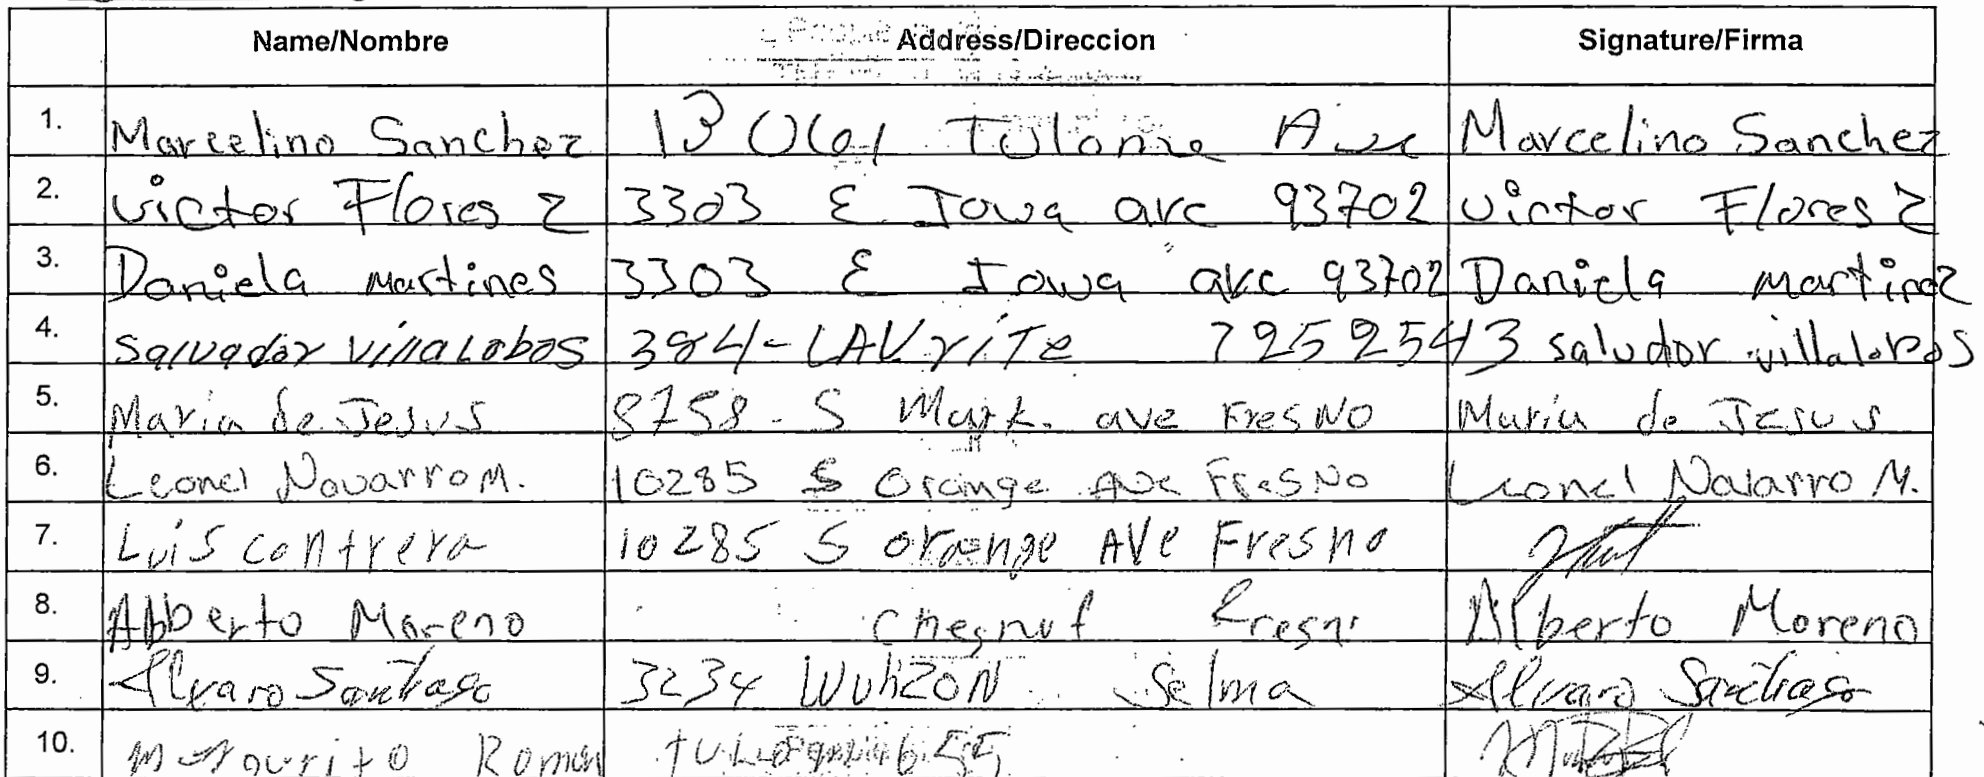 Name/Nombre Address/Direccion Signature/Firma
1. Marcelino Sanchez Tulome Ave Marcelino Sanchez
2. victor Flores Z 3303 E Iowa ave 93702 victor Flores Z
3. Daniela martines 3303 E Iowa ave 93702 Daniela martinez
4. Salvador villalobos 7252543 salvador villalobos
5. Maria de Jesus 8758 - S ave Fresno Maria de Jesus
6. Leonel Navarro M. 10285 S Orange Ave Fresno Leonel Navarro M.
7. Luis contrera 10285 S orange Ave Fresno
8. Alberto Moreno Chesnut Alberto Moreno
9. Alvaro Santiago 3234 Selma Alvaro Santiago
10. Roman